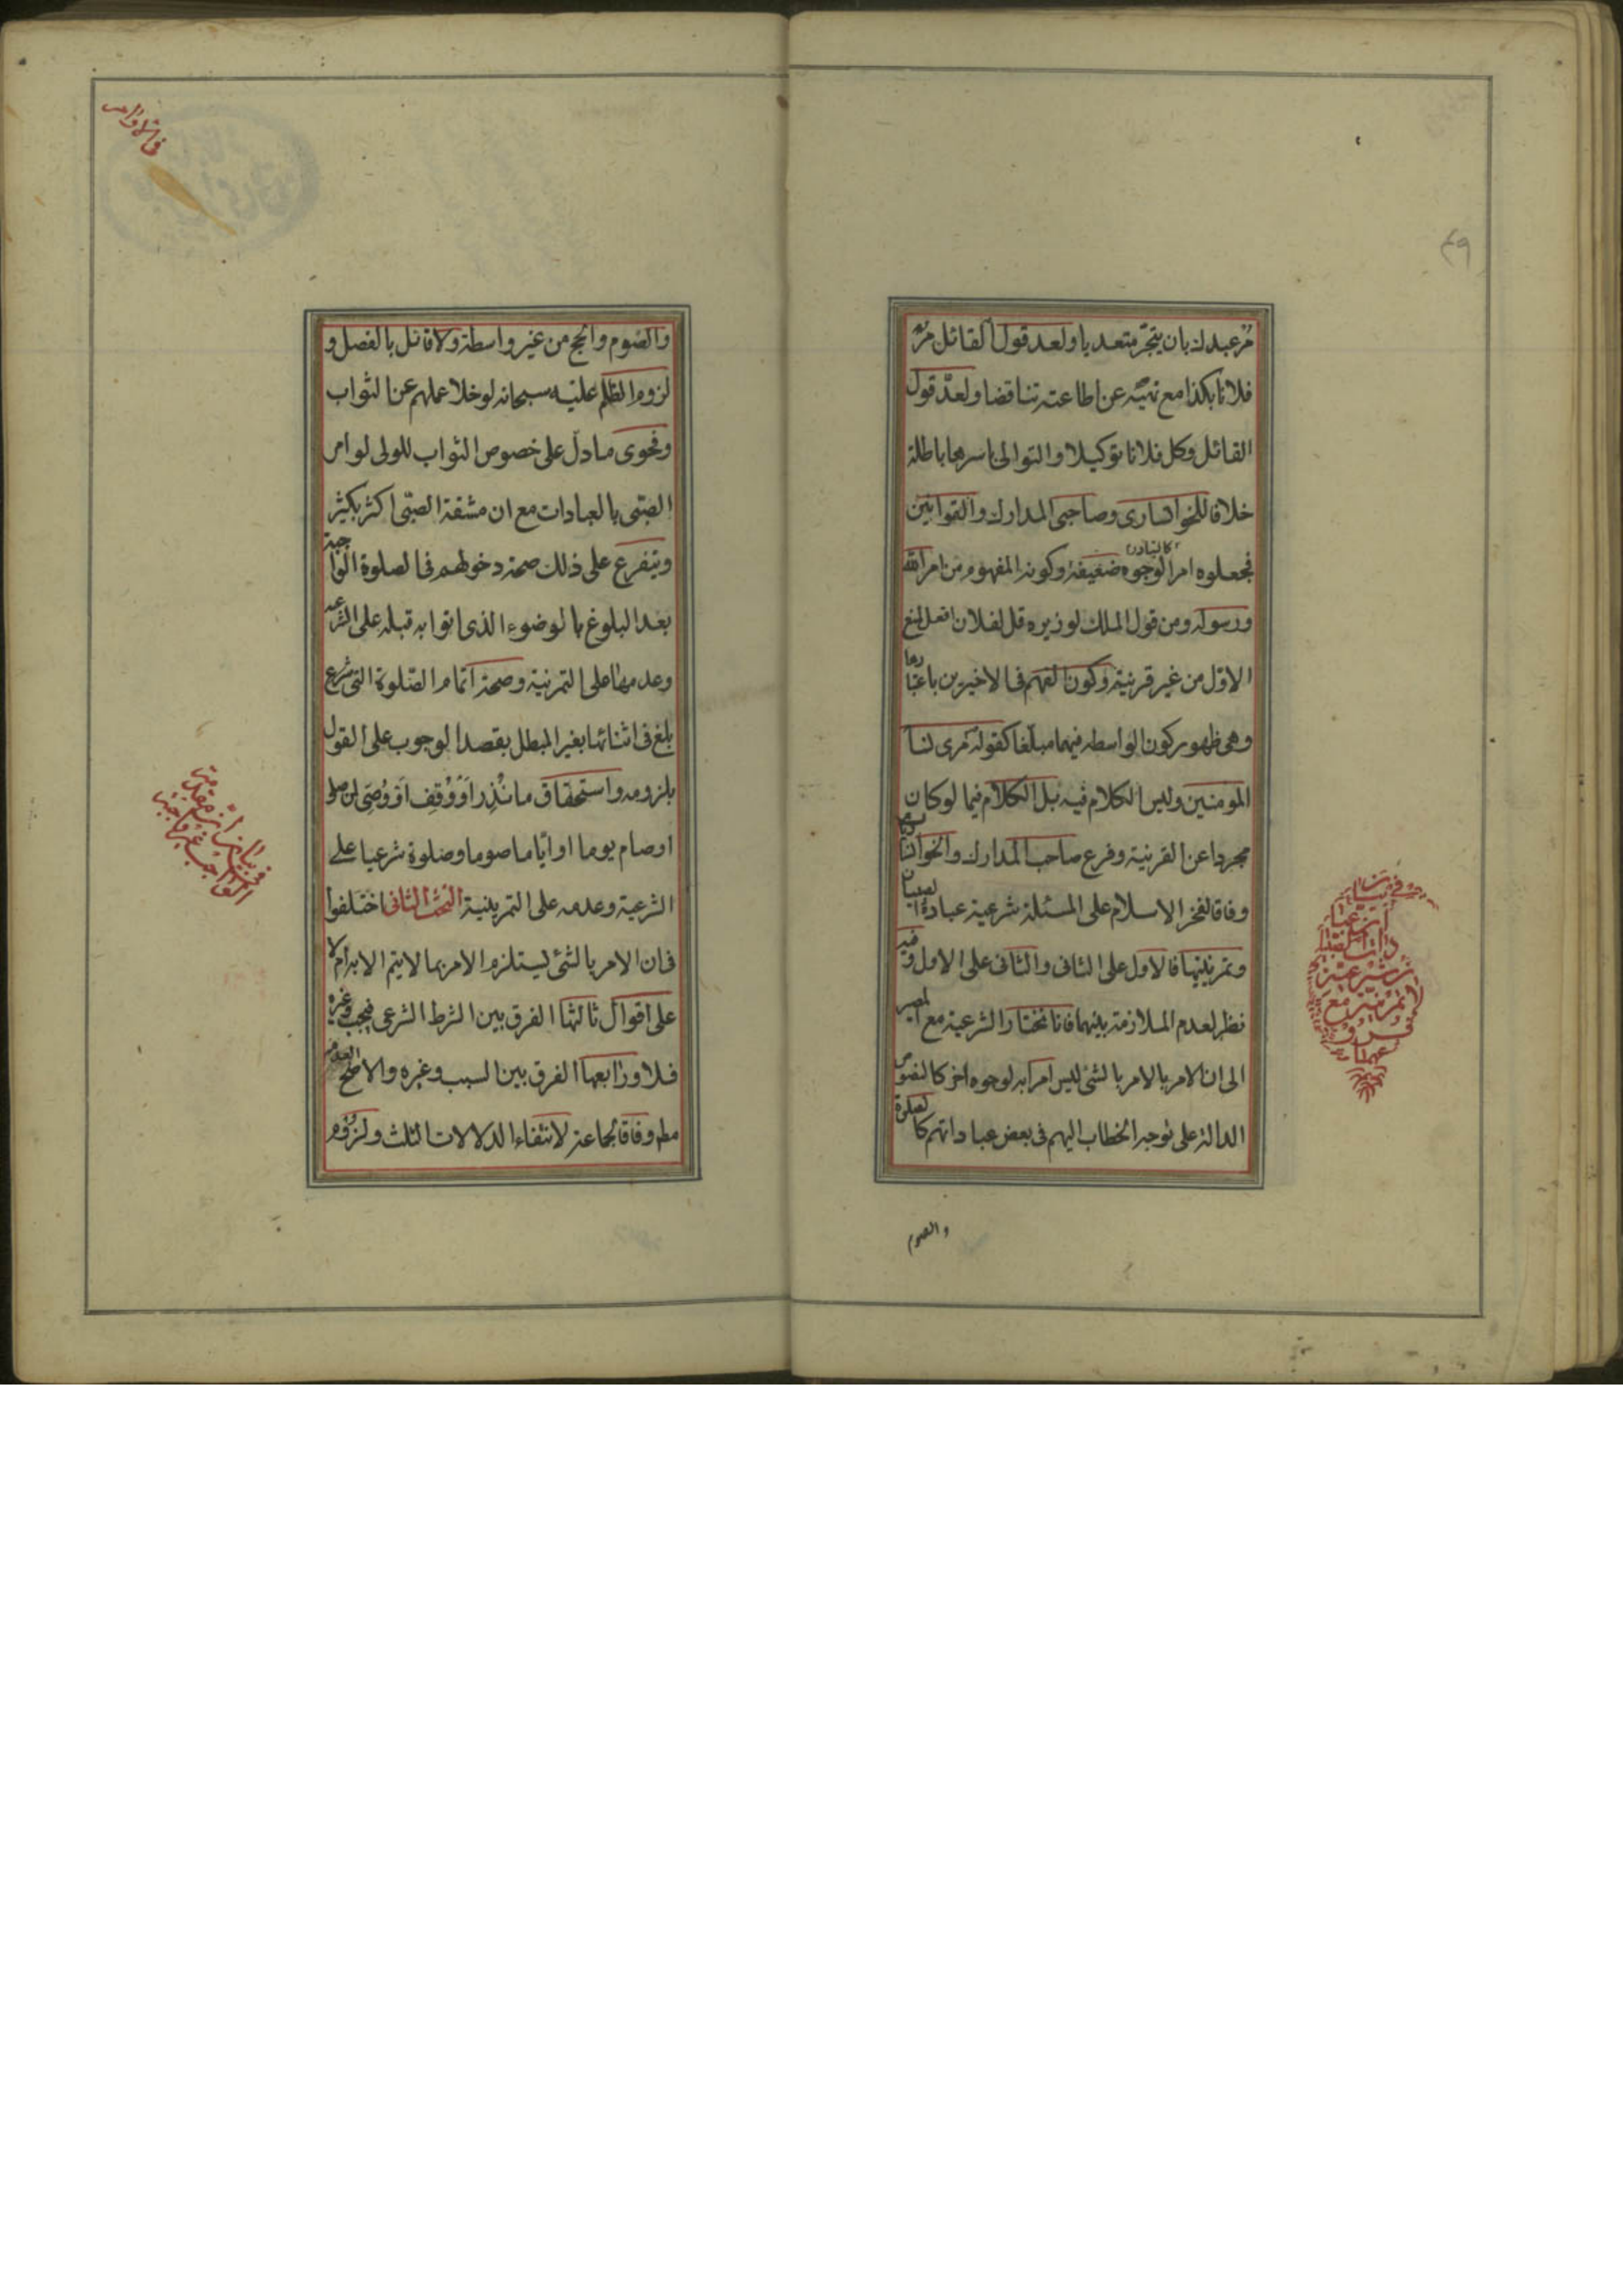 مر عبدك بان يتجر متعديا ولعد قول القائل مر
فلانا بكذا مع نهيه عن اطاعته تناقضا ولعد قول
القائل وكل فلانا توكيلا والتوالى باسرها باطلة
خلافا للخوانسارى وصاحبى المدارك والقوانين
فجعلوه امرا لوجوه ضعيفة كالتبادر وكونه المفهوم من امر الله
ورسوله ومن قول الملك لوزيره قل لفلان افعل لمنع
الاول من غير قرينة وكون الفهم فى الاخيرين باعتبارها
وهى ظهور كون الواسطه فيهما مبلغا كقوله مرى نساء
المومنين وليس الكلام فيه بل الكلام فيما لو كان
مجردا عن القرينة وفرع صاحب المدارك والخوانسارى
وفاقا لفخر الاسلام على المسئلة شرعية عبادة الصبيان
وتمرينيتها فالاول على الثانى والثانى على الاول وفيه
نظر لعدم الملازمة بينهما فانا نختار الشرعية مع المصير
الى ان الامر بالامر بالشئ ليس امرا به لوجوه اخر كالنصوص
الدالة على توجه الخطاب اليهم فى بعض عباداتهم كالصلوة
والصوم
فى بيان ان عبادات الصبيان شرعية او تمرينية مع فروعهما
۴۹
فى الاوامر
والصوم والحج من غير واسطة ولا قائل بالفصل و
لزوم الظلم عليه سبحانه لو خلا عملهم عن الثواب
وفحوى ما دل على خصوص الثواب للولى لو امر
الصبى بالعبادات مع ان مشقة الصبى اكثر بكثير
ويتفرع على ذلك صحة دخولهم فى الصلوة الواجبة
بعد البلوغ بالوضوء الذى اتوا به قبله على الشرعية
وعدمها على التمرينية وصحة اتمام الصلوة التى شرع
بلغ فى اثنائها بغير المبطل بقصد الوجوب على القول
بلزومه واستحقاق ما نُذِر او وُقِف او وُصِّى لمن صلى
او صام يوما او اياما صوما وصلوة شرعيا على
الشرعية وعدمه على التمرينية البحث الثانى اختلفوا
فى ان الامر بالشئ يستلزم الامر بما لا يتم الا به ام لا
على اقوال ثالثها الفرق بين الشرط الشرعى فيجب وغيره
فلا ورابعها الفرق بين السبب وغيره والاصح العدم
مطم وفاقا لجماعة لانتفاء الدلالات الثلث ولزوم
فى بيان ان مقدمة الواجب غير واجبة